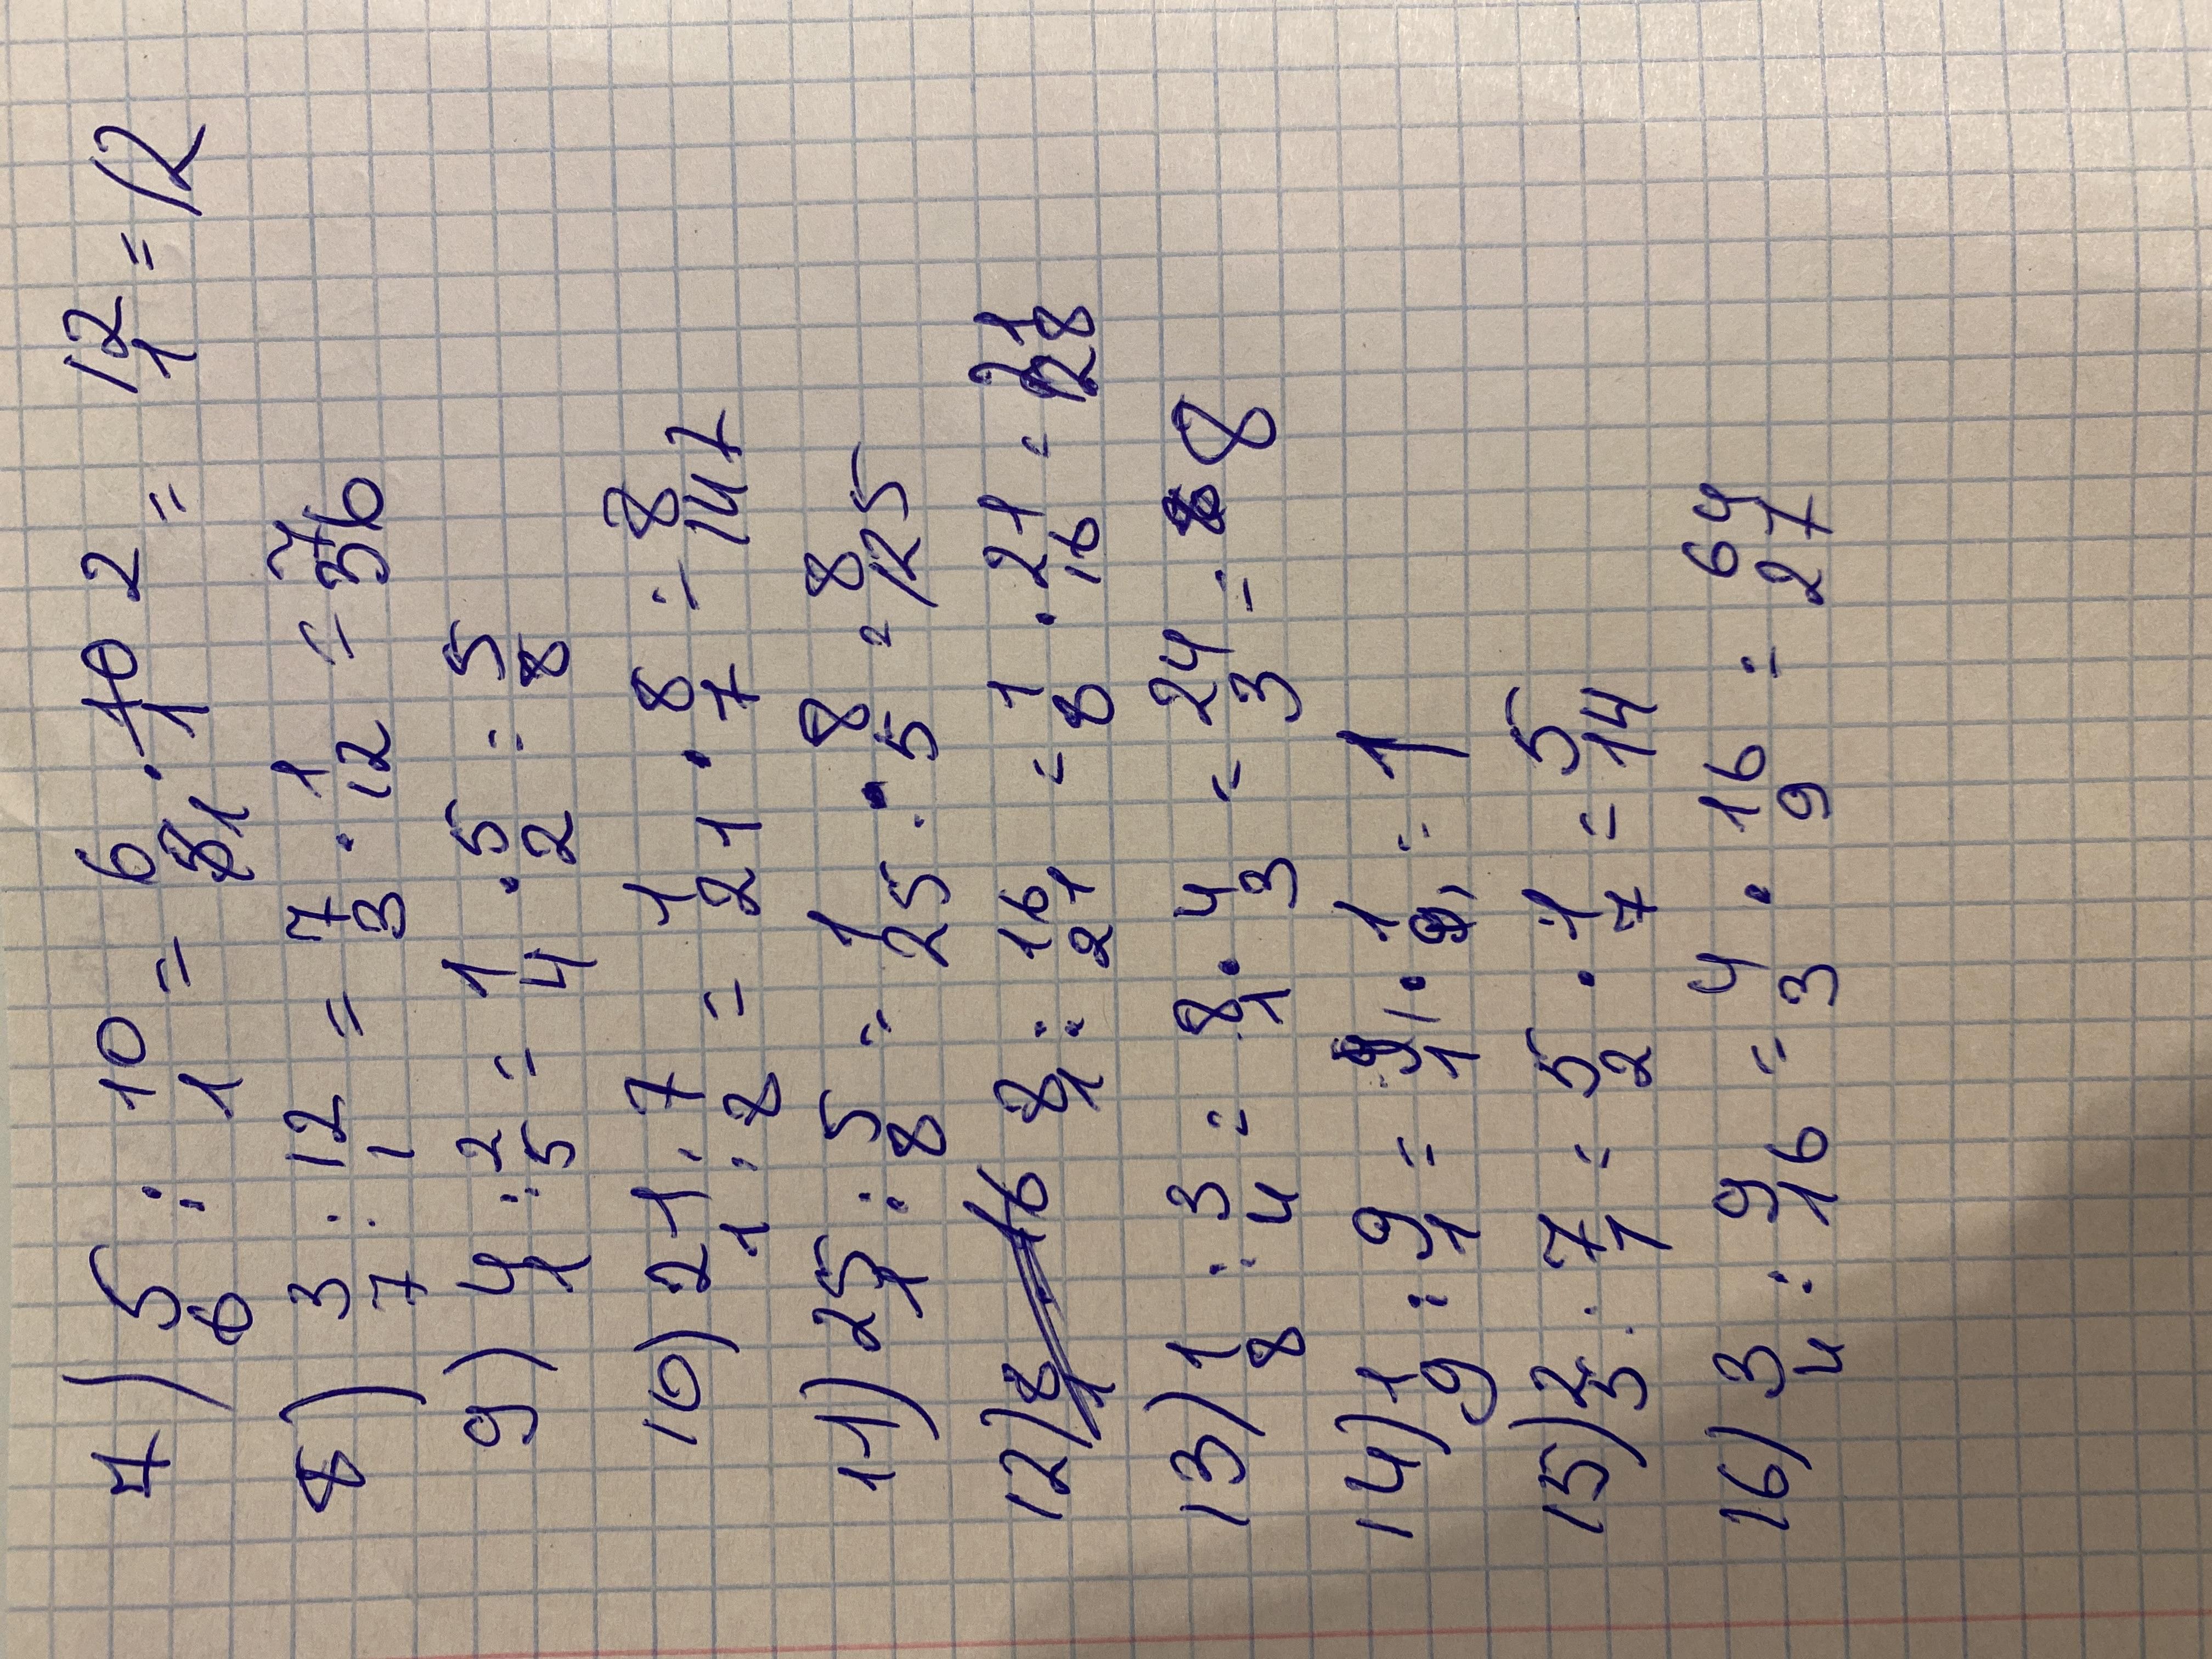 7) 5/6 : 10/1 = 6/5 1 · 10/1 2 = 12/1 = 12
8) 3/7 : 12/1 = 7/3 · 1/12 = 7/36
9) 4/1 : 2/5 = 1/4 · 5/2 = 5/8
10) 21/1 : 7/8 = 1/21 · 8/7 = 8/147
11) 25/1 : 5/8 = 1/25 · 8/5 = 8/125
12) 8/1 16 8/1 : 16/21 = 1/8 · 21/16 = 21/128
13) 1/8 : 3/4 = 8/1 · 4/3 = 24/3 = 8
14) 1/9 : 9/1 = 9/1 · 1/9 = 1
15) 2/5 : 7/1 = 5/2 · 1/7 = 5/14
16) 3/4 : 9/16 = 4/3 · 16/9 = 64/27